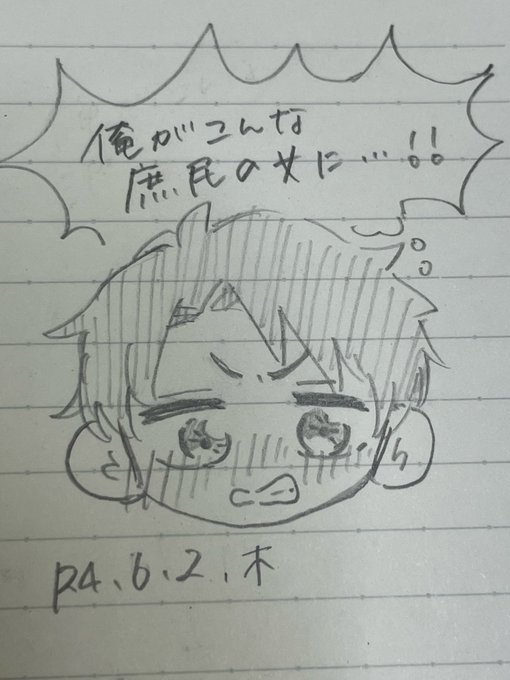 俺がこんな
庶民の女に…!!
R4.6.2.木